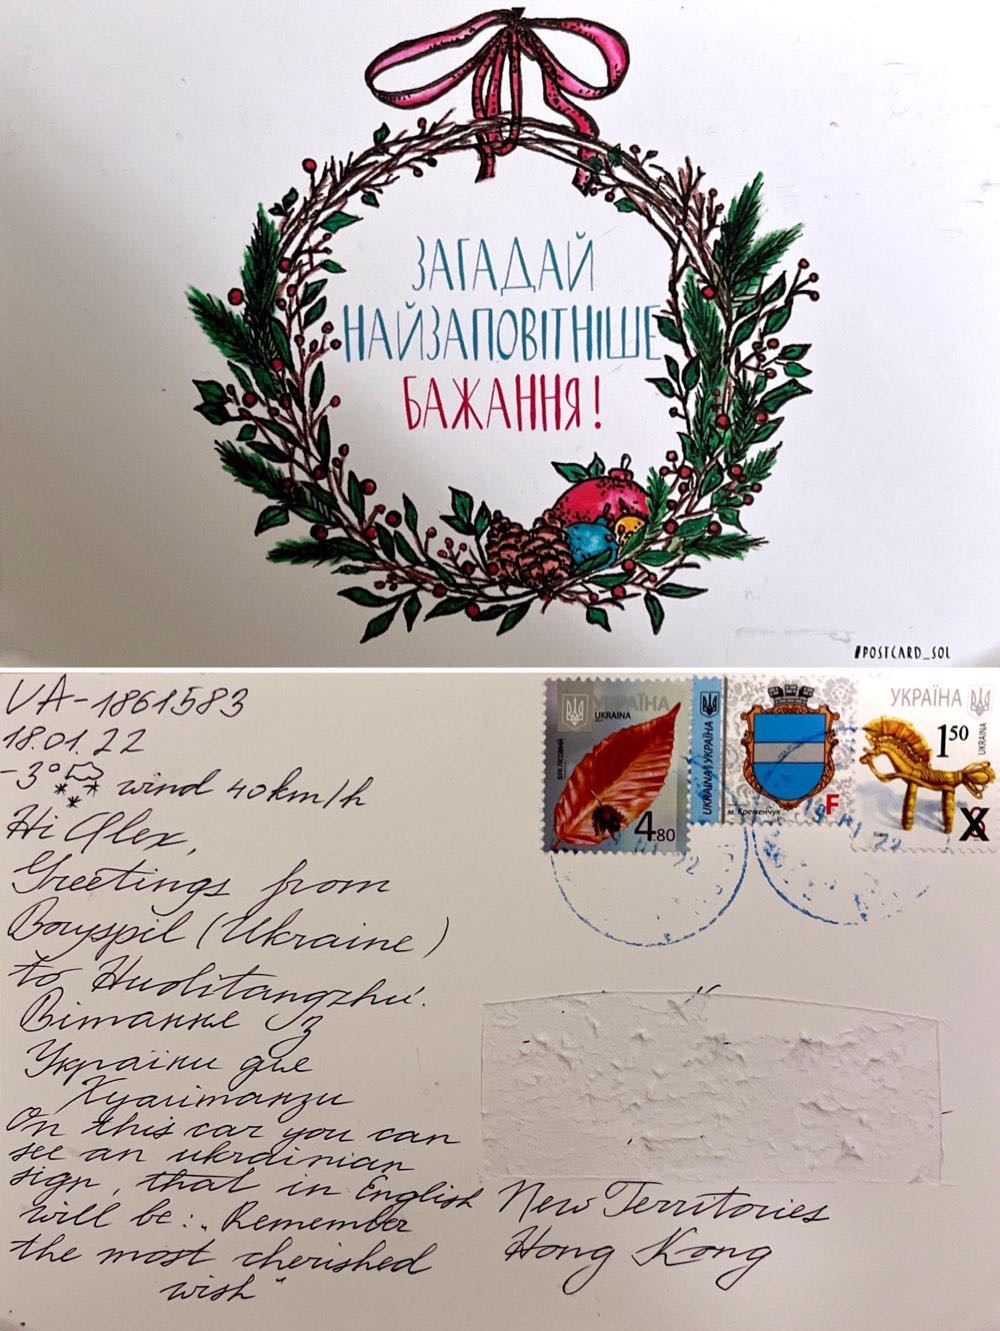 ЗАГАДАЙ
НАЙЗАПОВІТНІШЕ
БАЖАННЯ!
#POSTCARD_SOL
UA-1861583
18.01.22
-3° wind 40km/h
Hi Alex,
Greetings from
Boryspil (Ukraine)
to Huolitangzhu.
Вітання з
України для
Хуалітанзи
On this car you can
see an ukrainian
sign, that in English
will be: „Remember
the most cherished
wish"
УКРАЇНА
UKRAINA
БУК ЛІСОВИЙ
4.80
UKRAINA УКРАЇНА
м. Кременчук
F
УКРАЇНА
1.50
UKRAINA
Коник
22
22
New Territories
Hong Kong